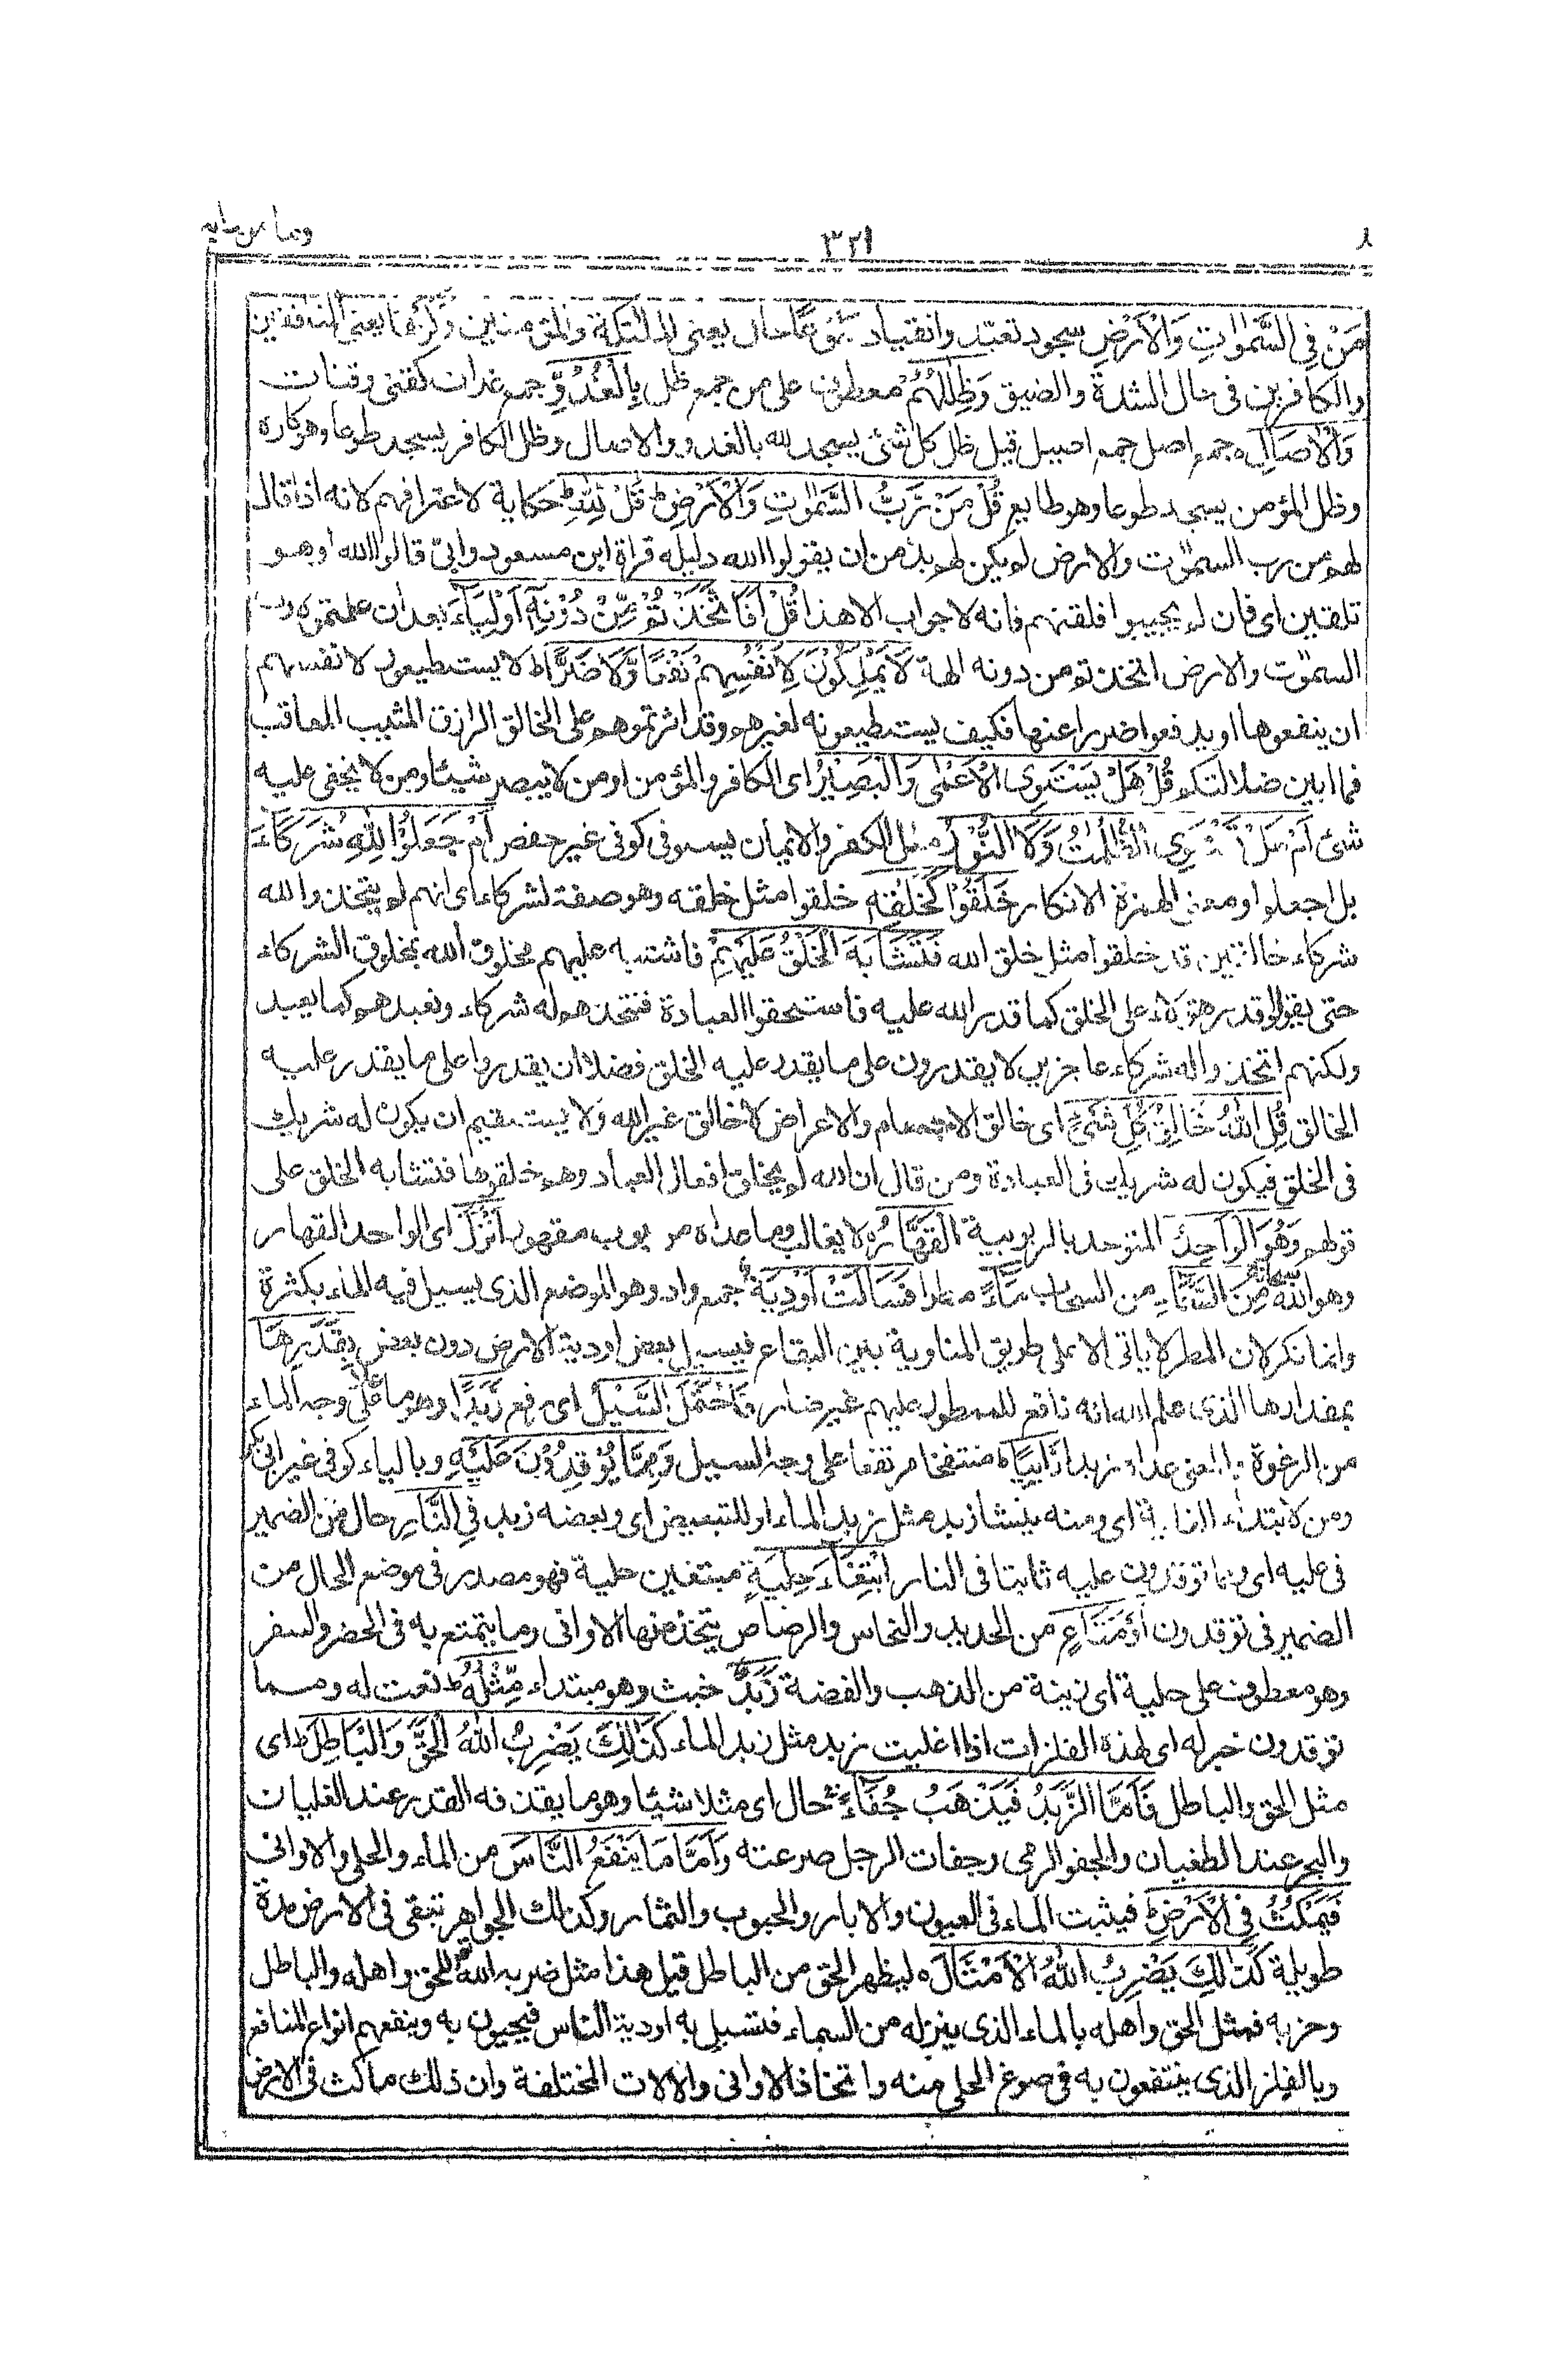 وما من دابه
٣٢١
٨
مَنْ فِي السَّمٰوٰتِ وَالْاَرْضِ سجود تعبد وانقياد طَوْعًا حال يعنى الملئكة والمؤمنين وَّكَرْهًا يعنى المنافقين
والكافرين فى حال الشدة والضيق وَظِلٰلُهُمْ معطوف على من جمع ظل بِالْغُدُوِّ جمع غداة كقنى وقنات
وَالْاٰصَالِ جمع اصل جمع اصيل قيل ظل كل شئ يسجد لله بالغدو والاصال وظل الكافر يسجد طوعا وهو كاره
وظل المؤمن يسجد طوعا وهو طايع قُلْ مَنْ رَّبُّ السَّمٰوٰتِ وَالْاَرْضِ ط قُلْ لِلّٰهِ ط حكاية لاعترافهم لانه اذا قال
لهم من رب السمٰوٰت والارض لم يكن لهم بد من ان يقولوا الله دليله قراة ابن مسعود وابىّ قالوا الله او هو
تلقين اى فان لم يجيبوا فلقنهم فانه لا جواب الا هذا قُلْ اَفَاتَّخَذْتُمْ مِّنْ دُوْنِهٖٓ اَوْلِيَآءَ بعد ان علمتموه رب
السمٰوٰت والارض اتخذتم من دونه الهة لَا يَمْلِكُوْنَ لِاَنْفُسِهِمْ نَفْعًا وَّلَا ضَرًّا ط لا يستطيعون لانفسهم
ان ينفعوها او يدفعوا ضررا عنها فكيف يستطيعونه لغيرهم وقد اثرتموهم على الخالق الرازق المثيب المعاقب
فما ابين ضلالتكم قُلْ هَلْ يَسْتَوِى الْاَعْمٰى وَالْبَصِيْرُ اى الكافر والمؤمن او من لا يبصر شيئا ومن لا يخفى عليه
شئ اَمْ هَلْ تَسْتَوِى الظُّلُمٰتُ وَلَا النُّوْرُ ملل الكفر والايمان يستوى كوفى غير حفص اَمْ جَعَلُوْا لِلّٰهِ شُرَكَآءَ
بل اجعلوا ومعنى الهمزة الانكار خَلَقُوْا كَخَلْقِهٖ خلقوا مثل خلقه وهو صفة لشركاء اى انهم لم يتخذوا لله
شركاء خالقين قد خلقوا مثل خلق الله فَتَشَابَهَ الْخَلْقُ عَلَيْهِمْ فاشتبه عليهم مخلوق الله بمخلوق الشركاء
حتى يقولوا قدر هؤلاء على الخلق كما قدر الله عليه فاستحقوا العبادة فنتخذهم له شركاء ونعبدهم كما يعبد
ولكنهم اتخذوا له شركاء عاجزين لا يقدرون على ما يقدر عليه الخلق فضلا ان يقدروا على ما يقدر عليه
الخالق قُلِ اللّٰهُ خَالِقُ كُلِّ شَيْءٍ اى خالق الاجسام والاعراض لا خالق غير الله ولا يستقيم ان يكون له شريك
فى الخلق فيكون له شريك فى العبادة ومن قال ان الله لم يخلق افعال العباد وهم خلقوها فتشابه الخلق على
قولهم وَهُوَ الْوَاحِدُ المتوحد بالربوبية الْقَهَّارُ لا يغالب وما عداه مربوب مقهور اَنْزَلَ اى الواحد القهار
وهو الله سبحانه مِنَ السَّمَآءِ من السحاب مَآءً مطرا فَسَالَتْ اَوْدِيَةٌ جمع واد وهو الموضع الذى يسيل فيه الماء بكثرة
وانما نكر لان المطر لا ياتى الا على طريق المناوبة بين البقاع فيسيل بعض اودية الارض دون بعض بِقَدَرِهَا
بمقدارها الذى علم الله انه نافع للممطور عليهم غير ضار فَاحْتَمَلَ السَّيْلُ اى رفع زَبَدًا هو ما علا على وجه الماء
من الرغوة والمعنى علاه زبد رَّابِيًا ط منتفخا مرتفعا على وجه السيل وَمِمَّا يُوْقِدُوْنَ عَلَيْهِ وبالياء كوفى غير ابى بكر
ومن لابتداء الغاية اى ومنه ينشأ زبد مثل زبد الماء او للتبعيض اى وبعضه زبد فِي النَّارِ حال من الضمير
فى عليه اى ومما توقدون عليه ثابتا فى النار ابْتِغَآءَ حِلْيَةٍ مبتغين حلية فهو مصدر فى موضع الحال من
الضمير فى توقدون اَوْ مَتَاعٍ من الحديد والنحاس والرصاص يتخذ منها الاوانى وما يتمتع به فى الحضر والسفر
وهو معطوف على حلية اى زينة من الذهب والفضة زَبَدٌ خبث وهو مبتداء مِّثْلُهٗ ط نعت له ومما
توقدون خبر له اى لهذه الفلزات اذا اغليت زبد مثل زبد الماء كَذٰلِكَ يَضْرِبُ اللّٰهُ الْحَقَّ وَالْبَاطِلَ ط اى
مثل الحق والباطل فَاَمَّا الزَّبَدُ فَيَذْهَبُ جُفَآءً حال اى مثلاشيئا وهو ما يقذفه القدر عند الغليان
والبحر عند الطغيان والجفو الرمى وجفات الرجل صرعته وَاَمَّا مَا يَنْفَعُ النَّاسَ من الماء والحلى والاوانى
فَيَمْكُثُ فِي الْاَرْضِ ط فيثبت الماء فى العيون والابار والحبوب والثمار وكذلك الجواهر تبقى فى الارض مدة
طويلة كَذٰلِكَ يَضْرِبُ اللّٰهُ الْاَمْثَالَ ليظهر الحق من الباطل قيل هذا مثل ضربه الله للحق واهله والباطل
وحزبه فمثل الحق واهله بالماء الذى ينزله من السماء فتسيل به اودية الناس فيحيون به وينفعهم انواع المنافع
وبالفلز الذى ينتفعون به فى صوغ الحلى منه واتخاذ الاوانى والالات المختلفة وان ذلك ماكث فى الارض